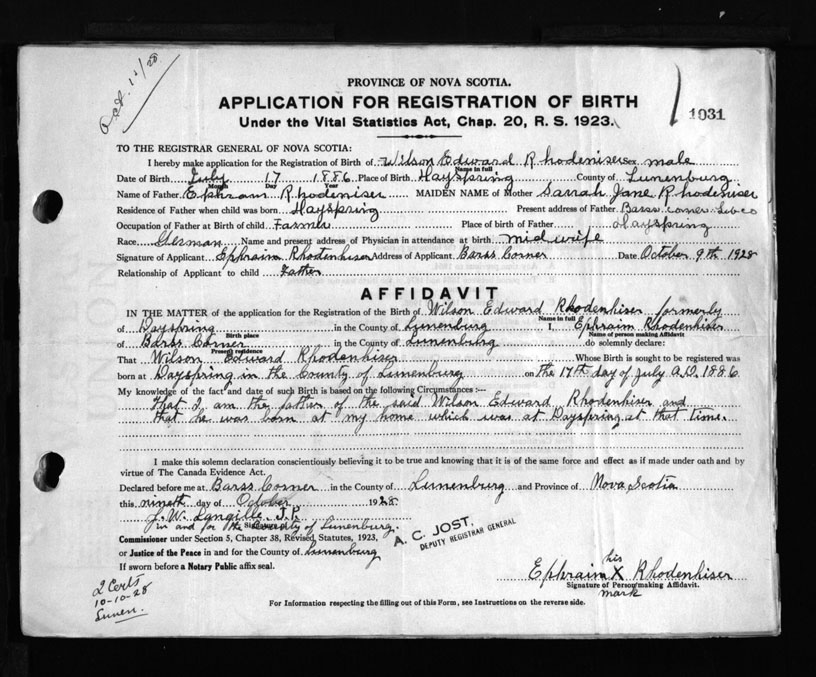 Oct. 11/28
PROVINCE OF NOVA SCOTIA.
APPLICATION FOR REGISTRATION OF BIRTH
Under the Vital Statistics Act, Chap. 20, R. S. 1923.
1031
TO THE REGISTRAR GENERAL OF NOVA SCOTIA:
I hereby make application for the Registration of Birth of Wilson Edward Rhodeniser Sex male
Name in full
Date of Birth July 17 1886 Place of Birth Hayspring County of Lunenburg
Month Day Year
Name of Father Ephram Rhodeniser MAIDEN NAME of Mother Sarrah Jane Rhodeniser
Residence of Father when child was born Hayspring Present address of Father Barss corner Lun co
Occupation of Father at Birth of child Farmer Place of birth of Father Hayspring
Race German Name and present address of Physician in attendance at birth midwife
Signature of Applicant Ephraim Rhodenhiser Address of Applicant Barss Corner Date October 9th 1928
Relationship of Applicant to child Father
AFFIDAVIT
IN THE MATTER of the application for the Registration of the Birth of Wilson Edward Rhodenhiser formerly
Name in full
of Dayspring in the County of Lunenburg I, Ephraim Rhodenhiser
Birth place Name of person making Affidavit
of Barss Corner in the County of Lunenburg do solemnly declare:
Present residence
That Wilson Edward Rhodenhiser Whose Birth is sought to be registered was
born at Dayspring in the County of Lunenburg on the 17th day of July A.D. 1886
My knowledge of the fact and date of such Birth is based on the following Circumstances :—
That I am the father of the said Wilson Edward Rhodenhiser and
that he was born at my home which was at Dayspring at that time.
I make this solemn declaration conscientiously believing it to be true and knowing that it is of the same force and effect as if made under oath and by
virtue of The Canada Evidence Act.
Declared before me at Barss Corner in the County of Lunenburg and Province of Nova Scotia
this nineth day of October 1928
J. W. Langille J.P.
in and for the County of Lunenburg.
Commissioner under Section 5, Chapter 38, Revised Statutes, 1923,
or Justice of the Peace in and for the County of Lunenburg
If sworn before a Notary Public affix seal.
A. C. JOST,
DEPUTY REGISTRAR GENERAL
his
Ephraim X Rhodenhiser
Signature of Person making Affidavit.
mark
2 Certs
10-10-28
Lunen.
For Information respecting the filling out of this Form, see Instructions on the reverse side.